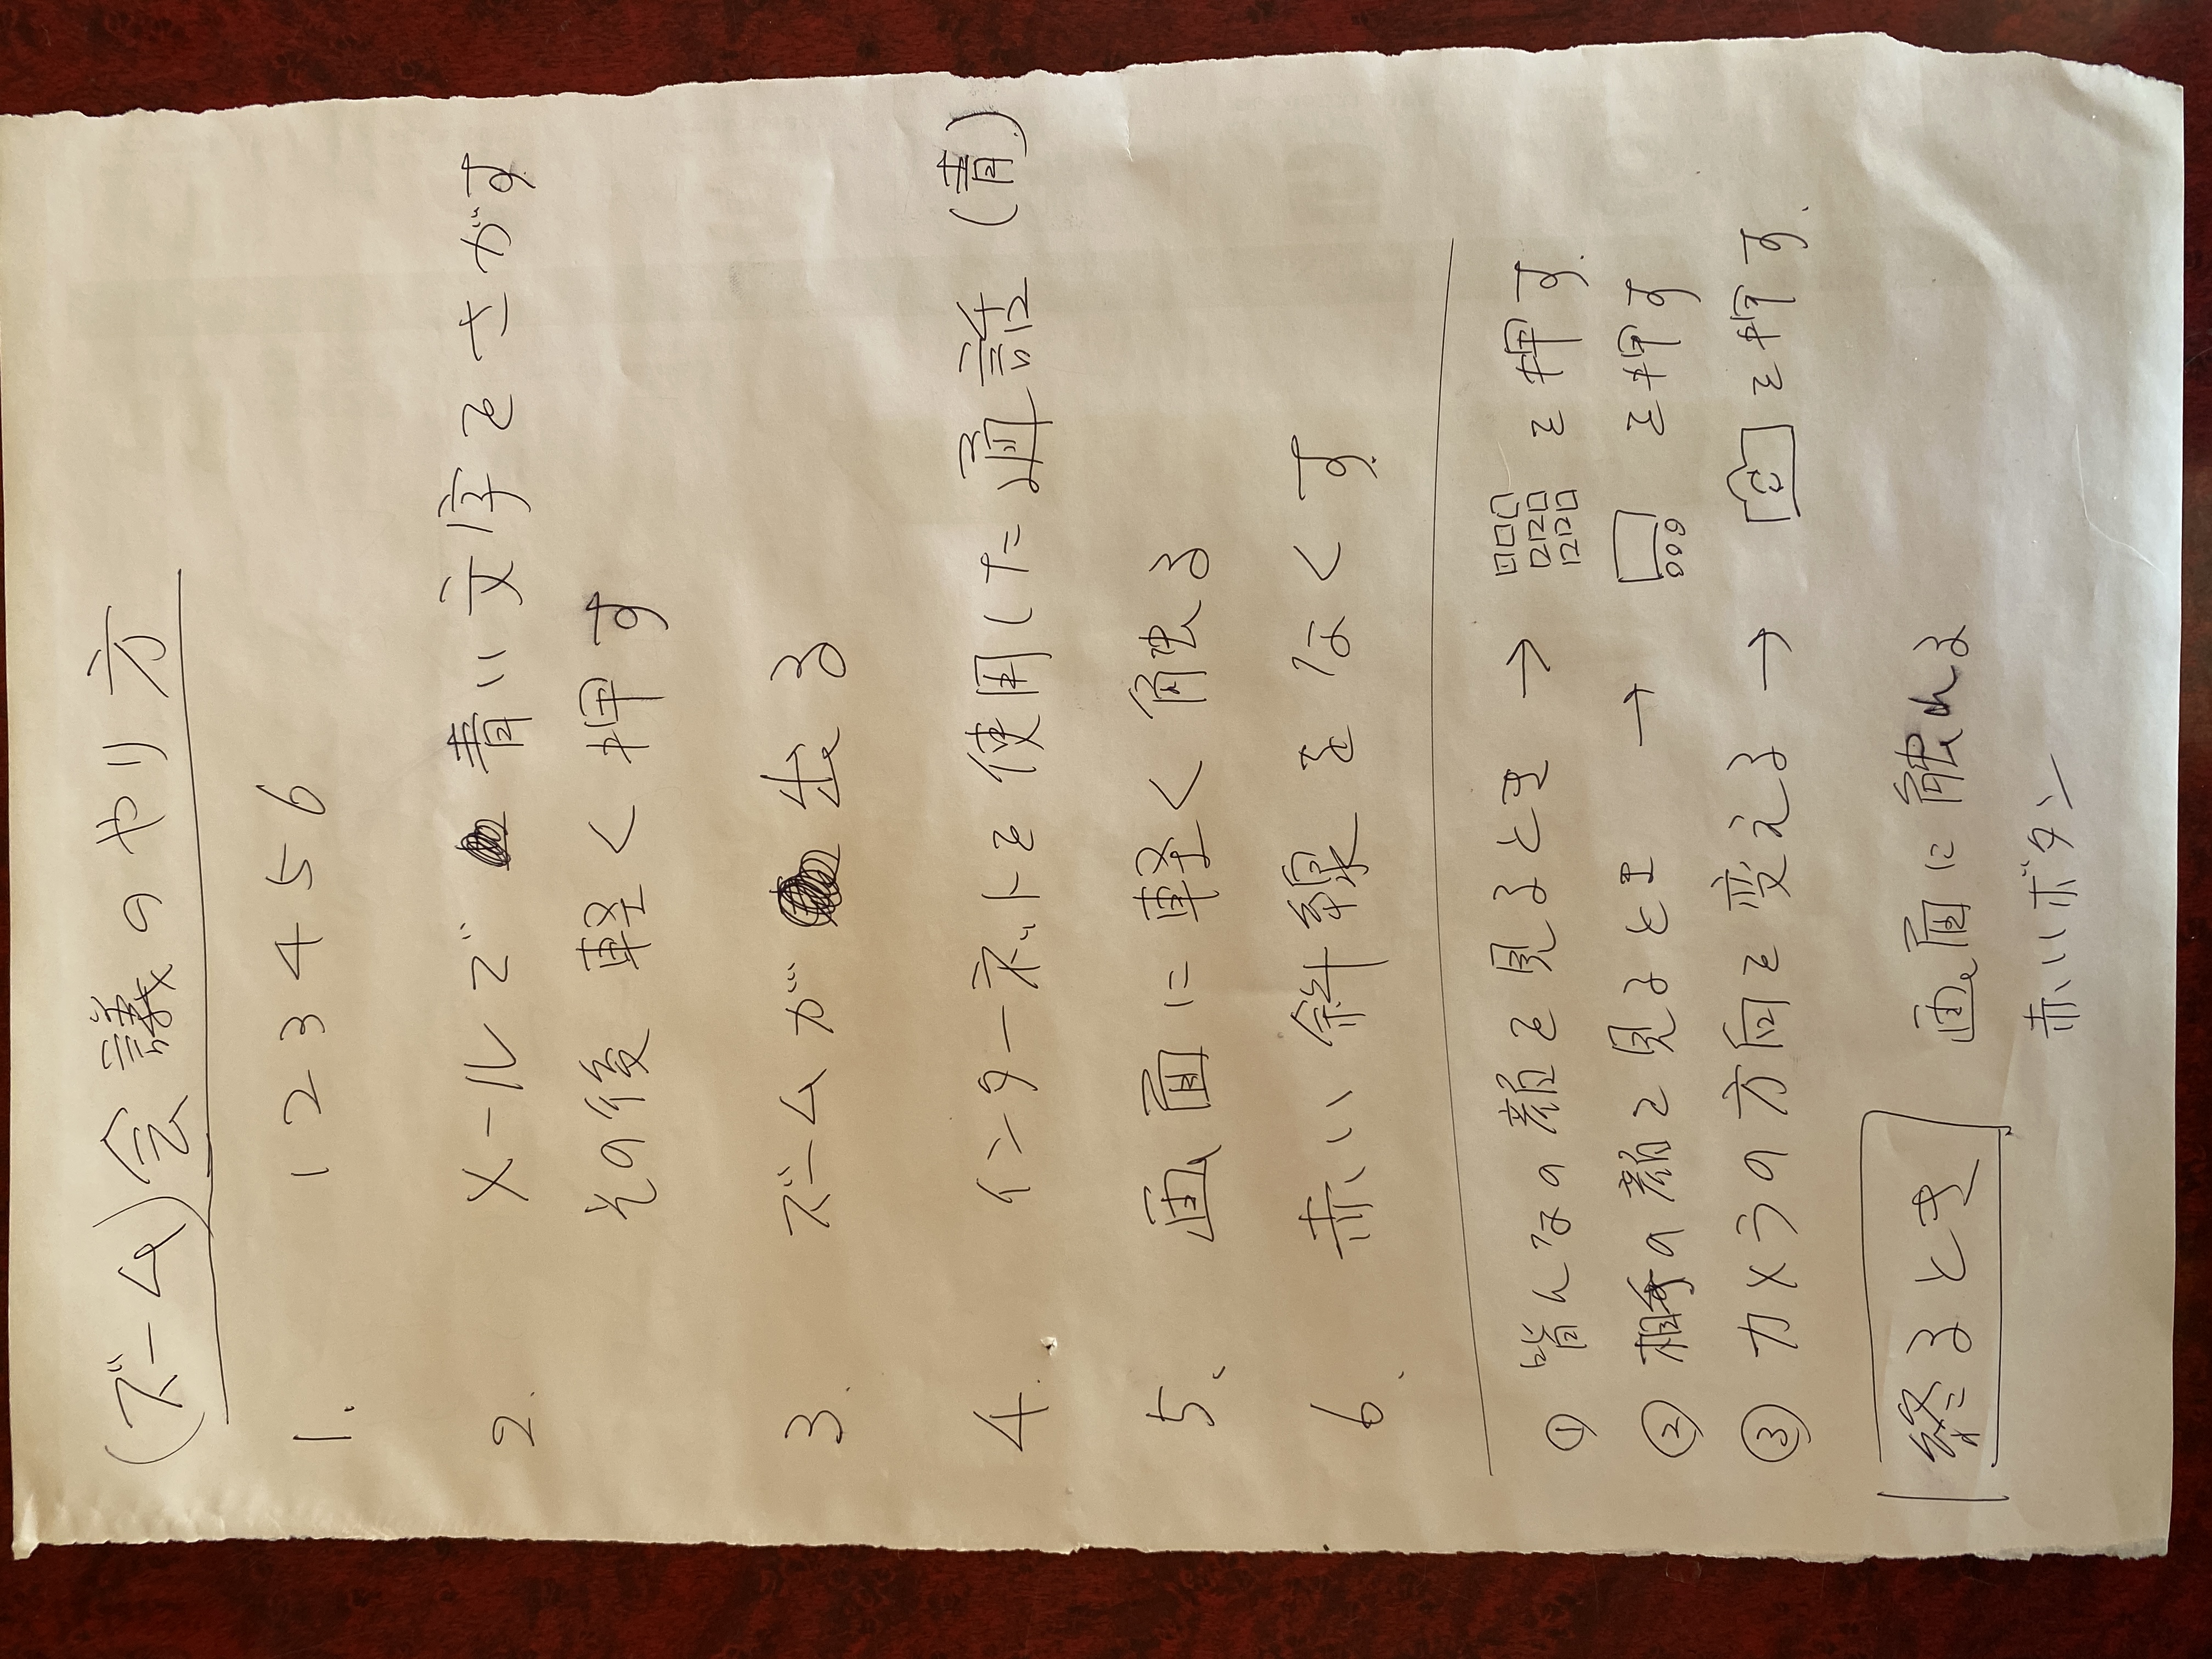 (ズーム)会議のやり方
1. 123456
2. メールで 青い文字をさがす
その後 軽く押す
3. ズームが 出る
4. インターネットを使用した通話 (青)
5. 画面に軽く触る
6. 赤い斜線をなくす.
① 皆んなの顔を見るとき → を押す.
② 相手の顔を見るとき → を押す
③ カメラの方向を変える → を押す.
終るとき 画面に触れる
赤いボタン